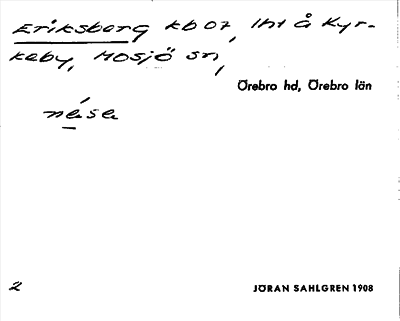 Eriksberg kb 07, lht å Kyr-
keby, Mosjö sn,
Örebro hd, Örebro län
näse
2
JÖRAN SAHLGREN 1908